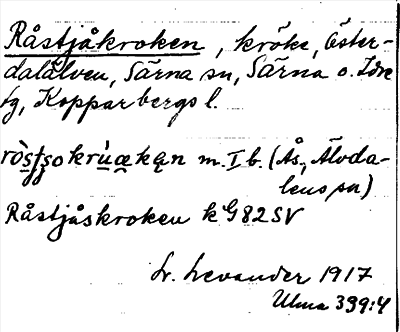 Råstjåkroken, kröke, Öster-
dalälven, Särna sn, Särna o. Idre
tg, Kopparbergs l.
m. I b. (Ås, Älvda-
lens sn)
Råstjåskroken k G 82 SV
L. Levander 1917
Ulma 339:4